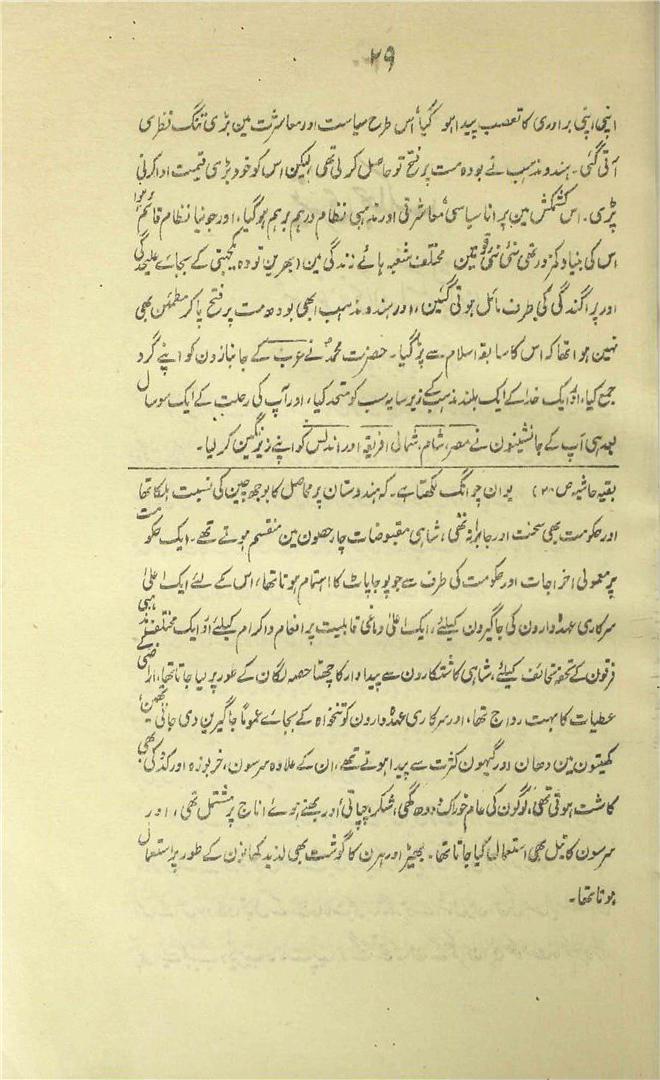 ۲۹
اپنی اپنی برادری کا تعصب پیدا ہو گیا، اس طرح سیاست اور معاشرت مین بڑی تنگ نظری
آتی گئی۔ ہندو مذہب نے بودھ مت پر فتح تو حاصل کر لی تھی لیکن اس کو خود بڑی قیمت ادا کرنی
پڑی۔ اس کشمکش مین پرانا سیاسی، معاشرتی اور مذہبی نظام درہم برہم ہوگیا، اور جو نیا نظام قائم ہوا
اس کی بنیاد کمزور تھی نئی نئی قوتین مختلف شعبہ ہائے زندگی مین ابھرین تو وہ یکجہتی کے بجائے علیحدگی
اور پراگندگی کی طرف مائل ہوتی گئین، اور ہندو مذہب ابھی بودھ مت پر فتح پا کر مطمئن بھی
نہین ہوا تھا کہ اس کا سابقہ اسلام سے پڑ گیا۔ حضرت محمدؐ نے عرب کے جانبازون کو اپنے گرد
جمع کیا، اور ایک خدا کے ایک بلند مذہب کے زیر سایہ سب کو متحد کیا، اور آپ کی رحلت کے ایک سو سال
بعد ہی آپ کے جانشینون نے مصر، شام، شمالی افریقہ اور اندلس کو اپنے زیر نگین کر لیا۔
بقیہ حاشیہ ص ۲۰) یوان چوانگ لکھتا ہے۔ کہ ہندوستان پر محاصل کا بوجھ چین کی نسبت ہلکا تھا
اور حکومت بھی سخت اور جابرانہ نہ تھی، شاہی مقبوضات چار حصون مین منقسم ہوتے تھے۔ ایک حکومت
پر معمولی اخراجات اور حکومت کی طرف سے جو پوجا پاٹ کا اہتمام ہوتا تھا، اس کے لئے ایک اعلیٰ
سرکاری عہدہ دارون کی جاگیرون کیلئے، ایک اعلیٰ دماغی قابلیت پر انعام و اکرام کیلئے اور ایک مختلف مذہبی
فرقون کے تحفہ تحائف کیلئے، شاہی کاشتکارون سے پیداوار کا چھٹا حصہ لگان کے طور پر لیا جاتا تھا، اراضی کے
عطیات کا بہت رواج تھا، اور سرکاری عہدہ دارون کو تنخواہ کے بجائے عموماً جاگیرین دی جاتی تھین،
کھیتون مین دھان اور گیہون کثرت سے پیدا ہوتے تھے، ان کے علاوہ سرسون، خربوزہ اور کدو کی بھی
کاشت ہوتی تھی، لوگون کی عام خوراک دودھ، گھی، شکر، چپاتی اور بھنے ہوئے اناج پر مشتمل تھی، اور
سرسون کا تیل بھی استعمال کیا جاتا تھا۔ بھیڑ اور ہرن کا گوشت بھی لذیذ کھانون کے طور پر استعمال
ہوتا تھا۔